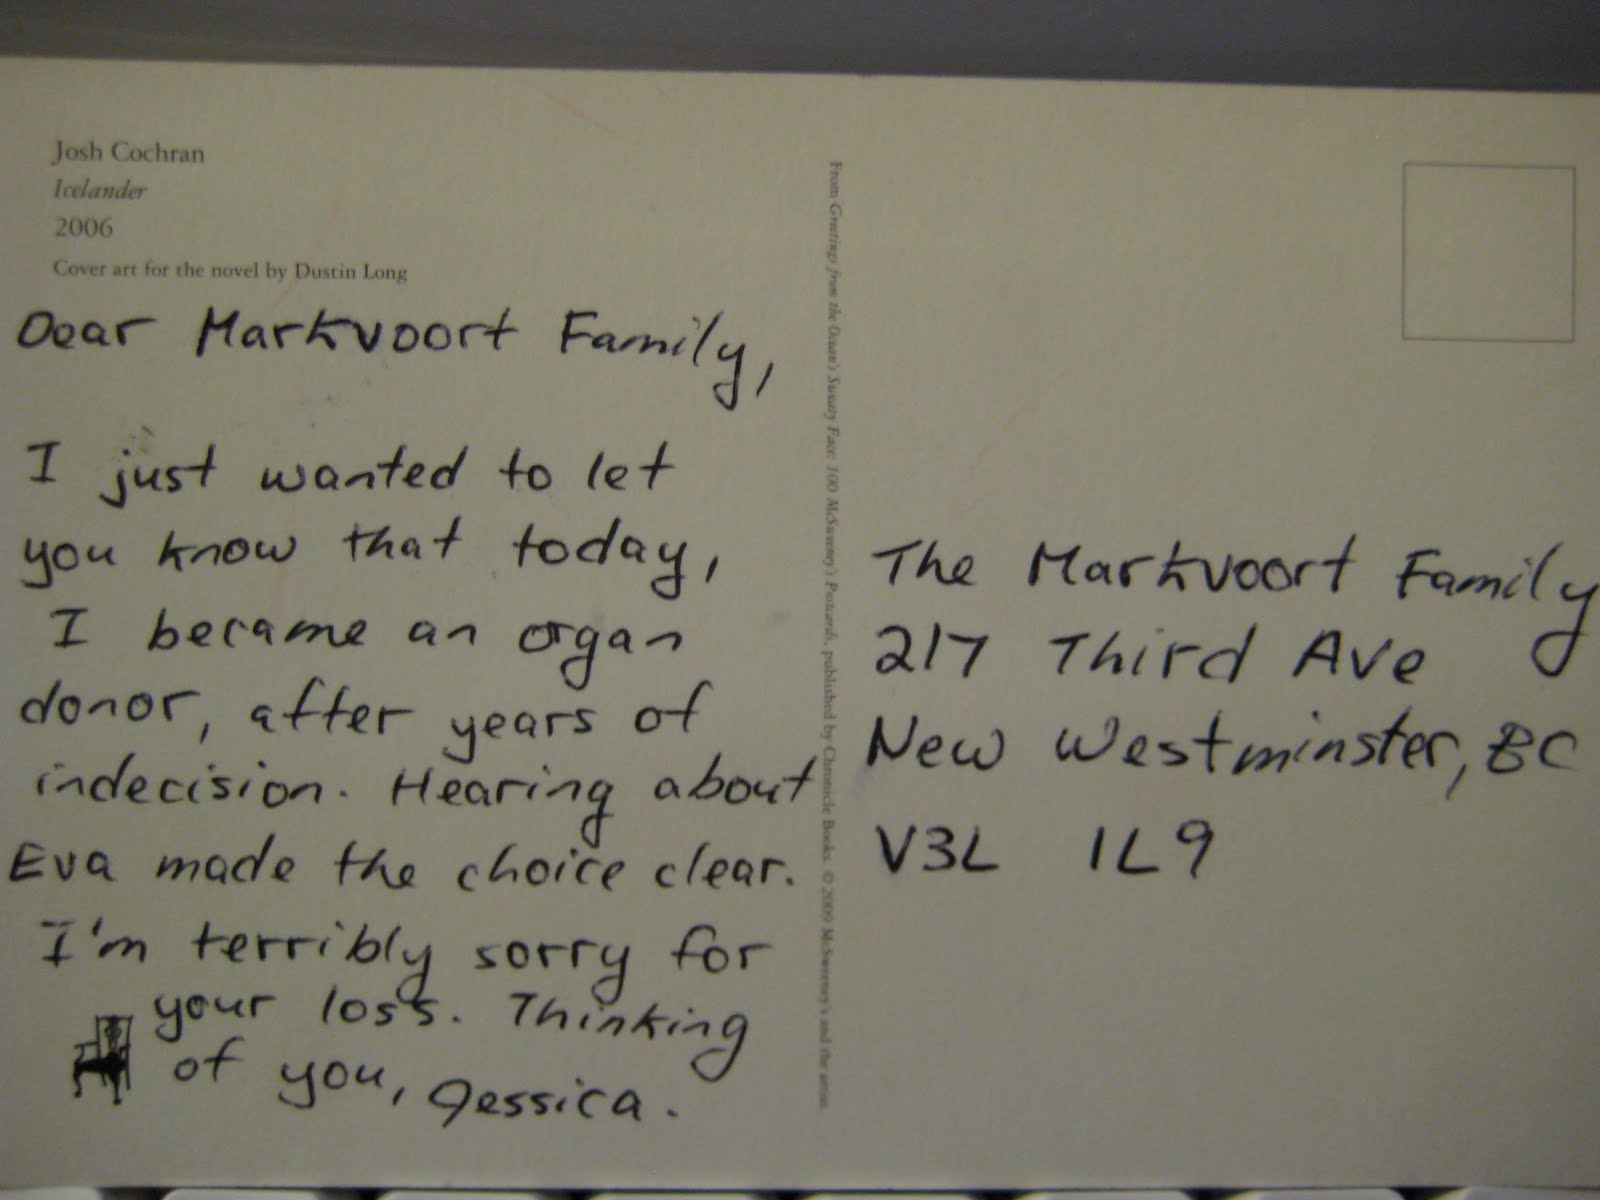 Josh Cochran
Icelander
2006
Cover art for the novel by Dustin Long
Dear Markvoort Family,
I just wanted to let
you know that today,
I became an organ
donor, after years of
indecision. Hearing about
Eva made the choice clear.
I'm terribly sorry for
your loss. Thinking
of you, Jessica.
From Greetings from the Ocean's Sweaty Face: 100 McSweeney's Postcards, published by Chronicle Books. © 2009 McSweeney's and the artist.
The Markvoort Family
217 Third Ave
New Westminster, BC
V3L 1L9